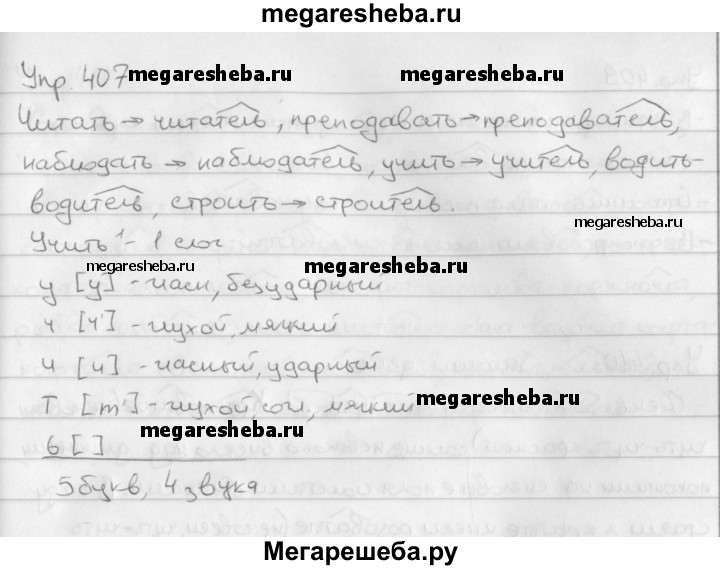 megaresheba.ru
Упр. 407 megaresheba.ru megaresheba.ru
Читать → читатель, преподавать → преподаватель,
наблюдать → наблюдатель, учить → учитель, водить-
водитель, строить → строитель.
megaresheba.ru
Учить¹ - 1 слог
megaresheba.ru megaresheba.ru
у [у] - гласн, безударный
ч [ч'] - глухой, мягкий
и [и] - гласный, ударный
т [т'] - глухой, согл, мягкий megaresheba.ru
ь [ ] megaresheba.ru
5 букв, 4 звука
Мегарешеба.ру